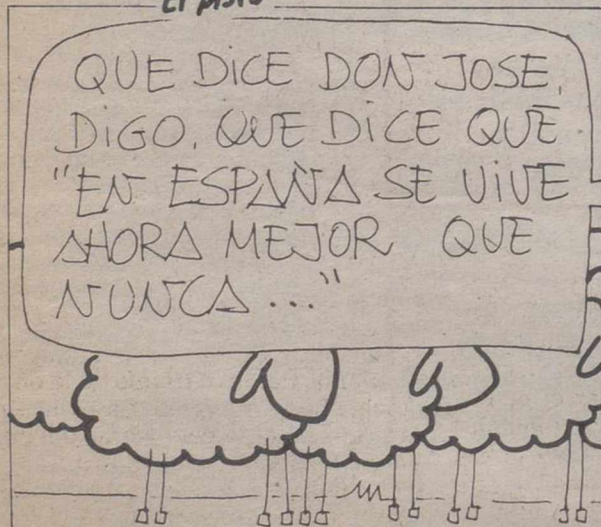 QUE DICE DON JOSE,
DIGO, QUE DICE QUE
"EN ESPAÑA SE VIVE
AHORA MEJOR QUE
NUNCA ..."